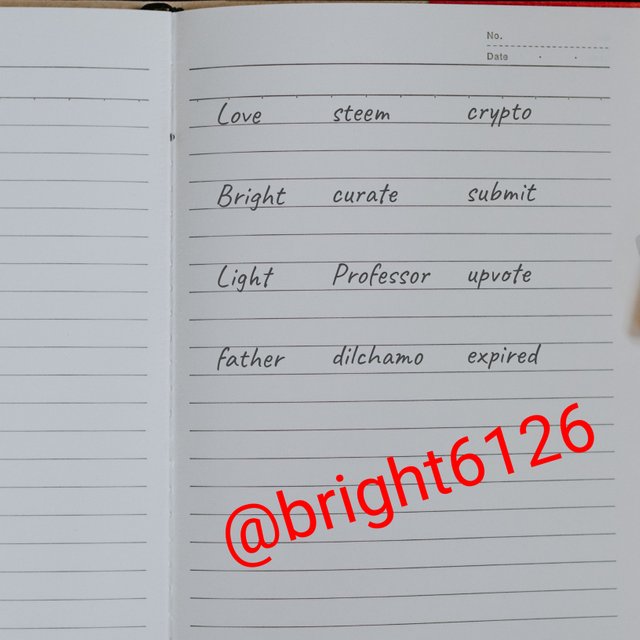 No.
Date
Love steem crypto
Bright curate submit
Light Professor upvote
father dilchamo expired
@bright6126